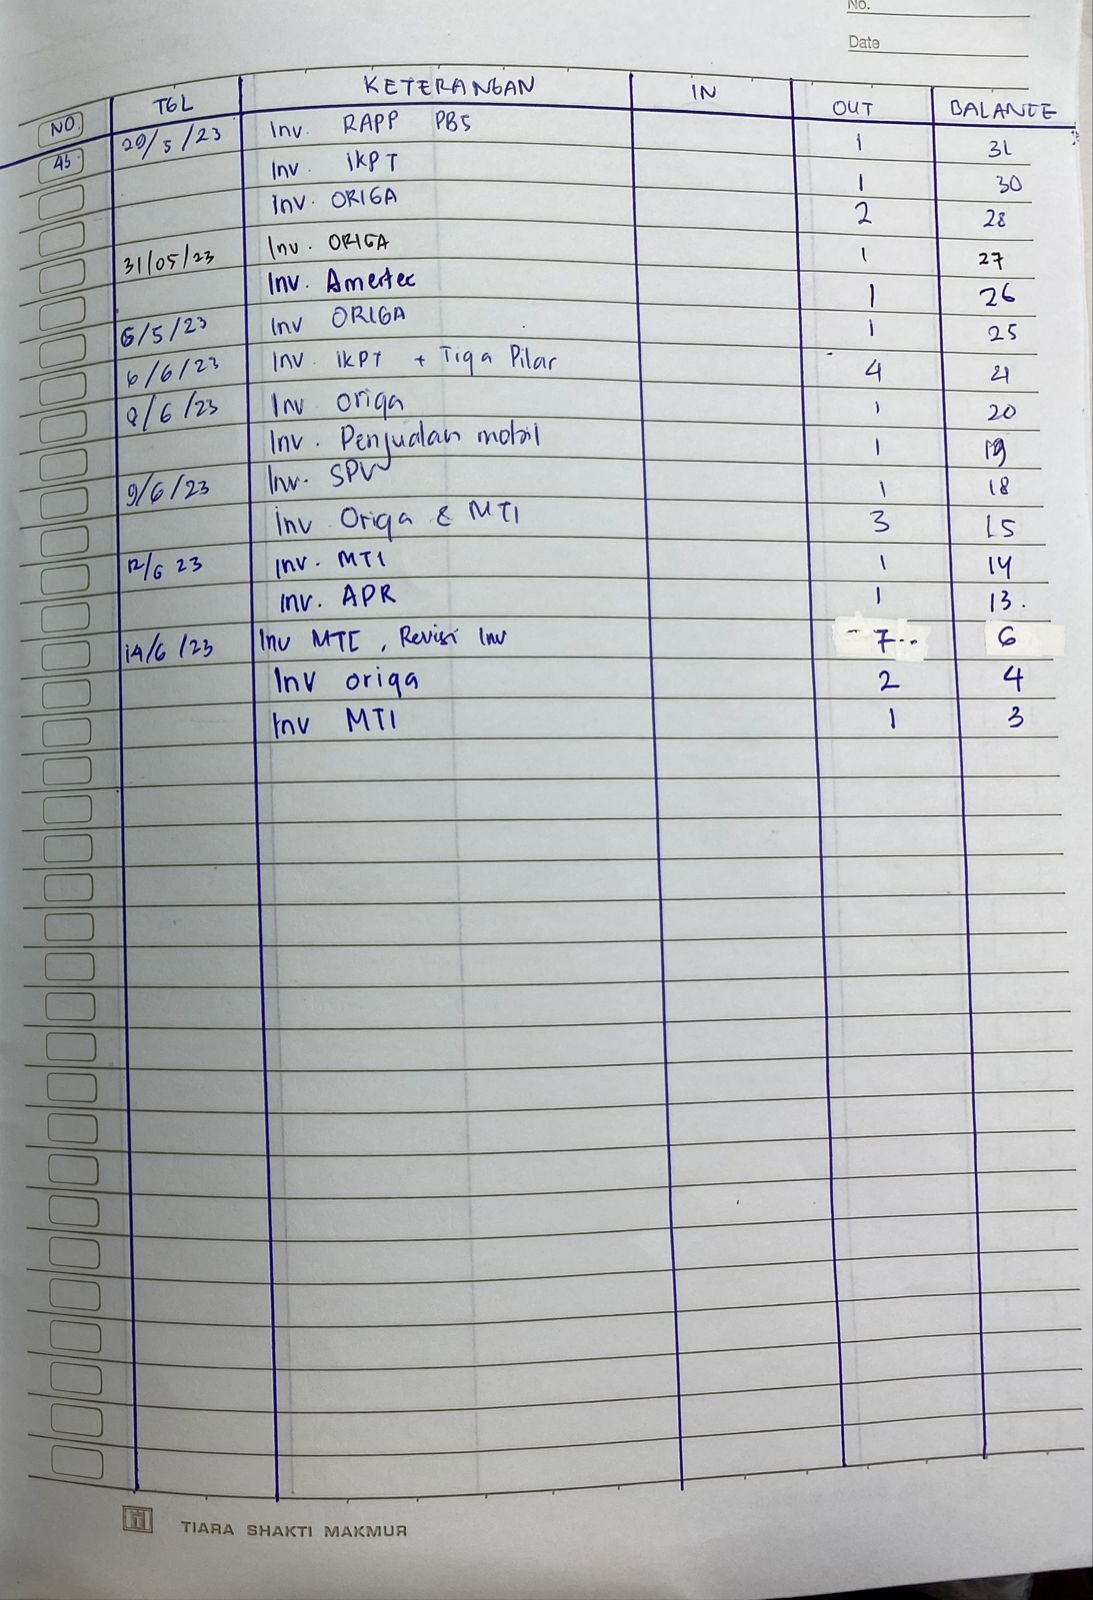 No.
Date
NO. TGL KETERANGAN IN OUT BALANCE
45 29/5/23 Inv. RAPP PBS 1 31
Inv. IKPT 1 30
Inv. ORIGA 2 28
31/05/23 Inv. ORIGA 1 27
Inv. Amertec 1 26
6/5/23 Inv ORIGA 1 25
6/6/23 Inv. IKPT + Tiga Pilar 4 21
8/6/23 Inv origa 1 20
Inv. Penjualan mobil 1 19
9/6/23 Inv. SPV 1 18
Inv Origa & MTI 3 15
12/6 23 Inv. MTI 1 14
Inv. APR 1 13.
14/6/23 Inv MTI, Revisi Inv 7 6
Inv origa 2 4
Inv MTI 1 3
TIARA SHAKTI MAKMUR